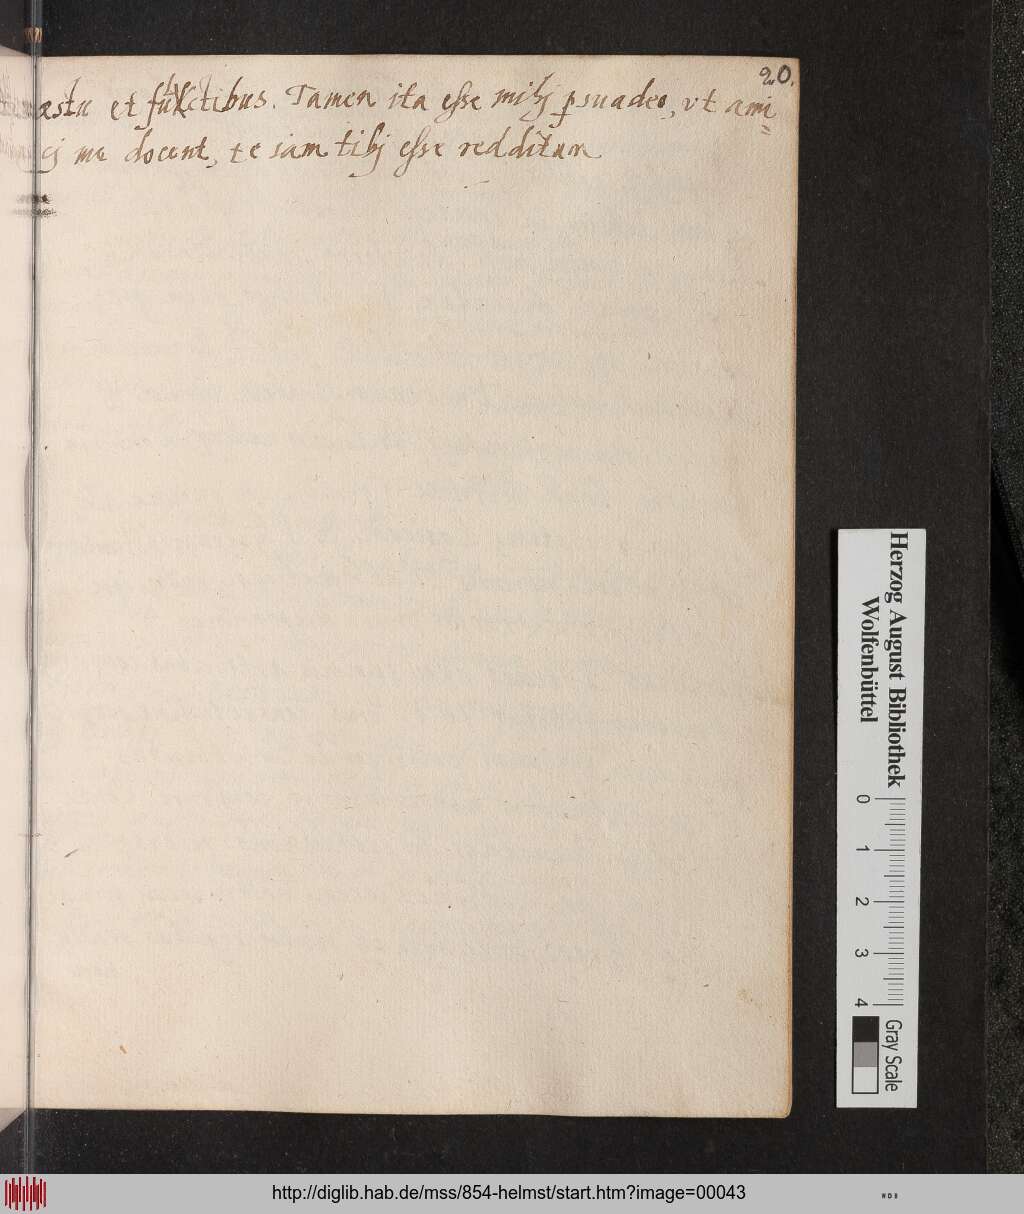 20.
æstu et fluctibus. Tamen ita esse mihj psuadeo, vt ami=
cj me docent, te iam tibj esse redditum
Herzog August Bibliothek
Wolfenbüttel
0 1 2 3 4
Gray Scale
http://diglib.hab.de/mss/854-helmst/start.htm?image=00043